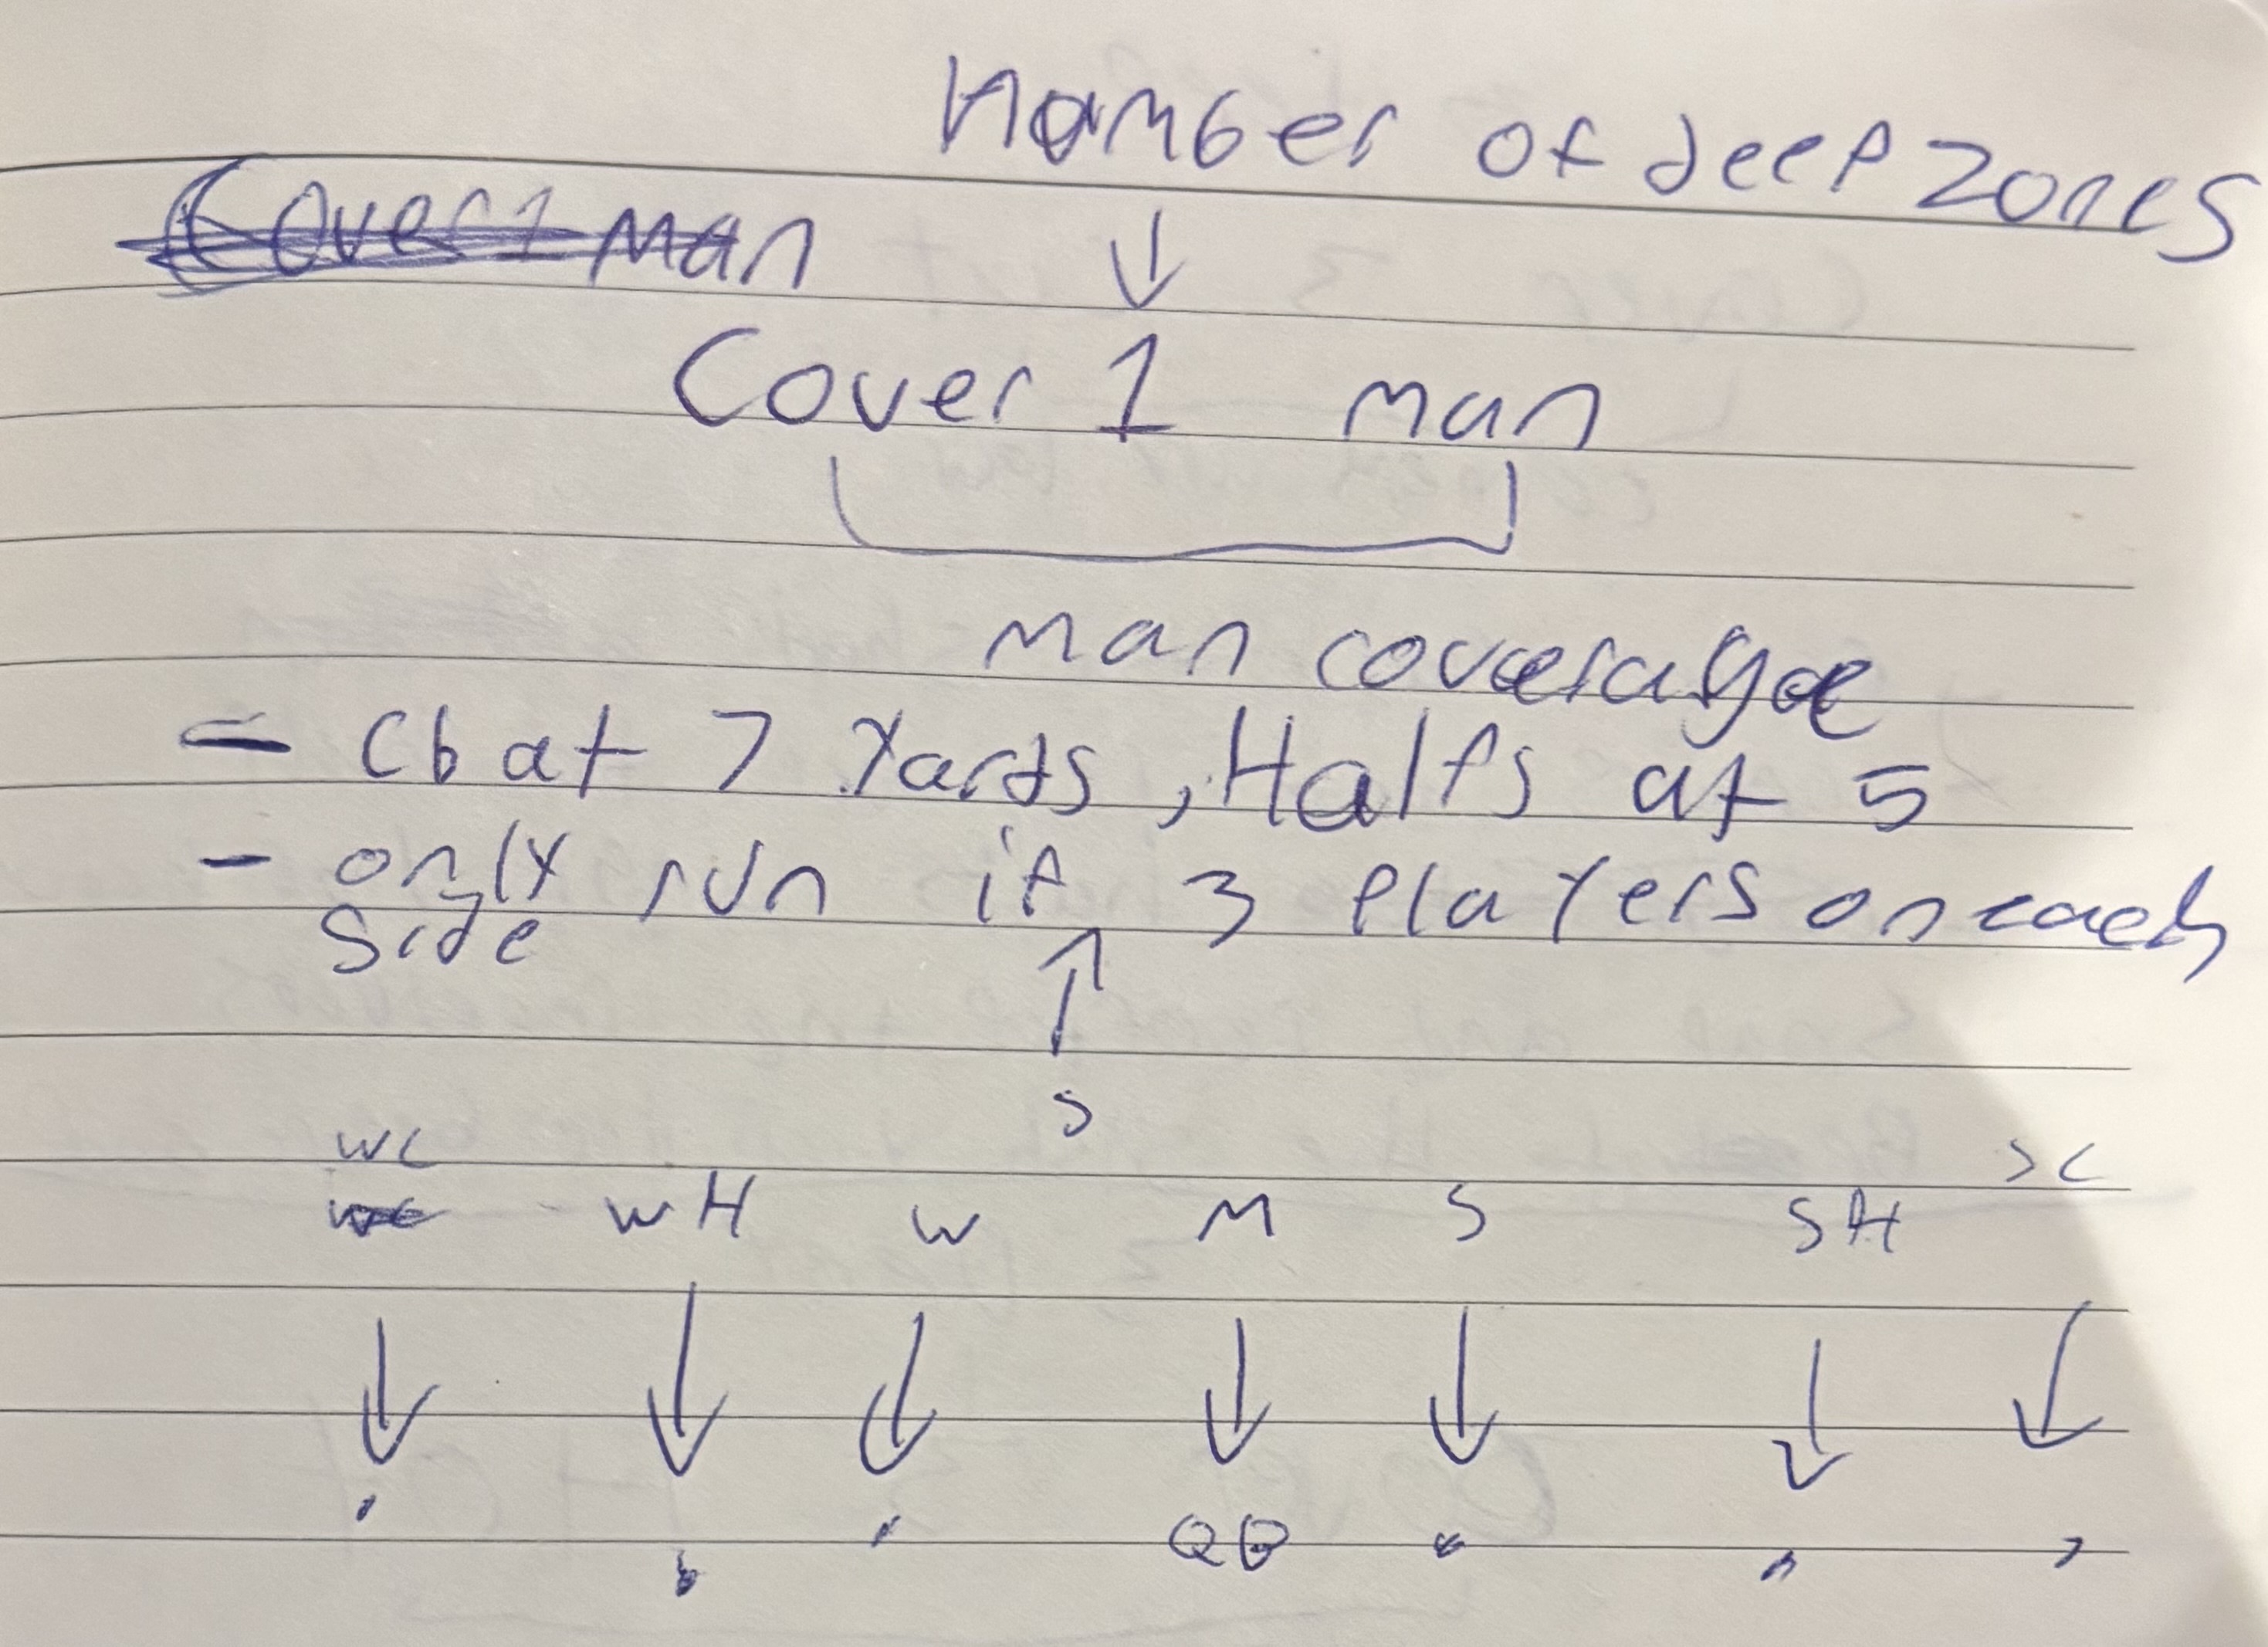 Number of deep zones
Cover 1 man
Cover 1 man
man coverage
- Cb at 7 Yards, Halfs at 5
- only run if 3 players on each
side
S
WC
WC
WH W M S SH SC
QB